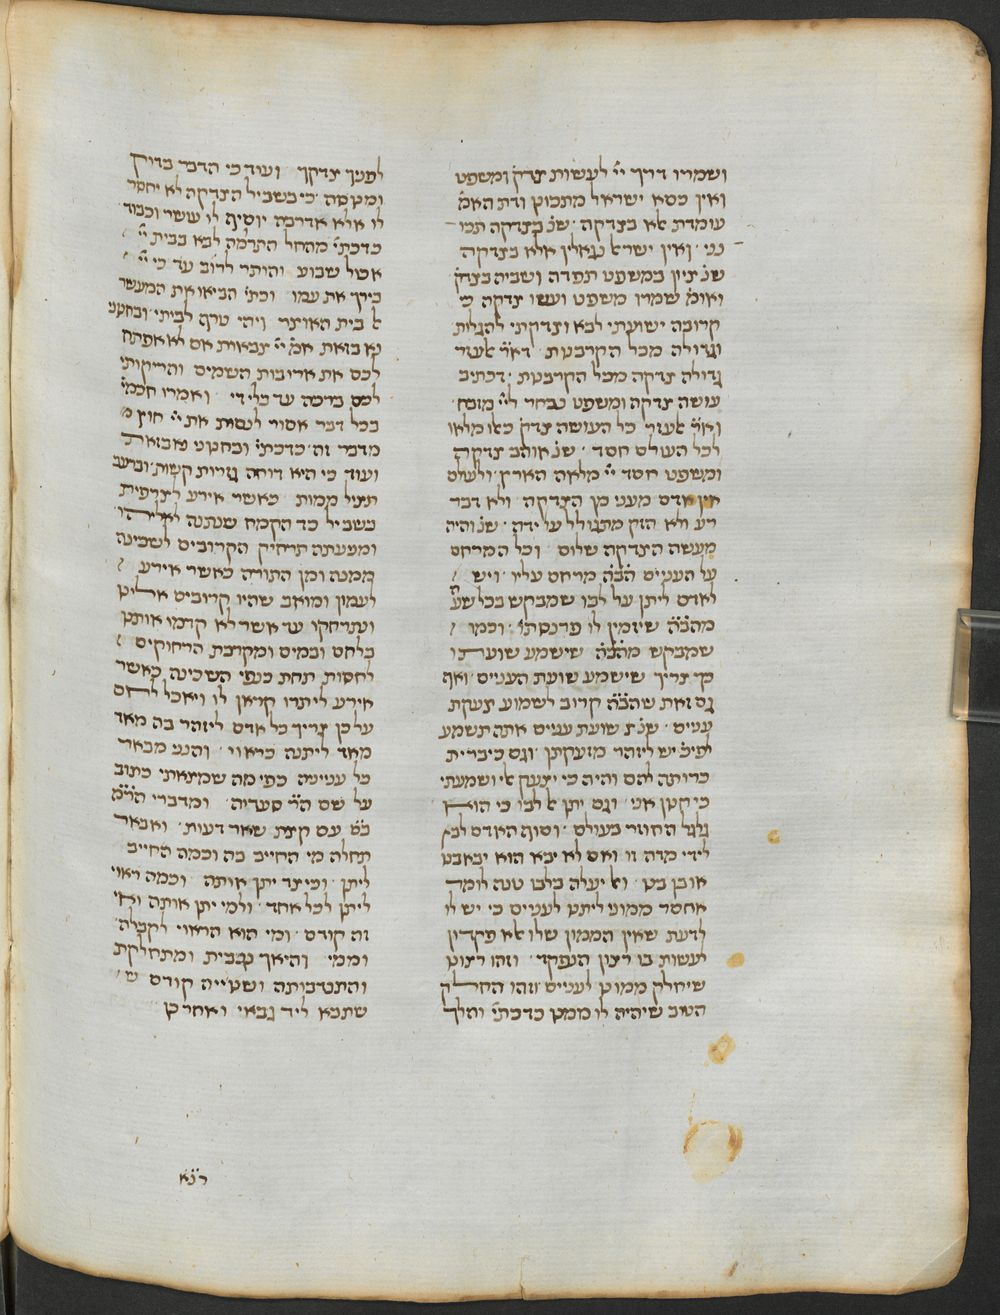 ושמרו דרך יי לעשות צדק׳ ומשפט
ואין כסא ישראל מתכונן ודת האמ׳
עומדת אלא בצדקה שנ׳ בצדקה תכו
נני ואין ישראל נגאלין אלא בצדקה
שנ׳ ציון במשפט תפדה ושביה בצדק׳
ואומ׳ שמרו משפט ועשו צדקה כי
קרובה ישועתי לבא וצדקתי להגלות
וגדולה מכל הקרבנות דא״ר אלעזר
גדולה צדקה מכל הקרבנות דכתיב
עושה צדקה ומשפט נבחר ליי מזבח
וא״ר אלעזר כל העושה צדק׳ כאלו מלאו
לכל העולם חסד שנ׳ אוהב צדקה
ומשפט חסד יי מלאה הארץ ולעולם
אין אדם מעני מן הצדקה ולא דבר
רע ולא הזק מתגולל על ידה שנ׳ והיה
מעשה הצדקה שלום וכל המרחם
על העניים הב״ה מרחם עליו ויש
לאדם ליתן על לבו שמבקש בכל שעה
מהב״ה שיזמין לו פרנסתו וכמו
שמבקש מהב״ה שישמע שועתו
כך צריך שישמע שועת העניים ואף
גם זאת שהב״ה קרוב לשמוע צעקת
עניים שנ׳ שועת עניים אתה תשמע
לפיכ׳ יש ליזהר מזעקתן וגם כי ברית
כרותה להם והיה כי יצעק אלי ושמעתי
כי חנון אני וגם יתן אל לבו כי הוא
גלגל החוזר בעולם וסוף האדם לבא
לידי מדה זו ואם לא יבא הוא יבא בנו
או בן בנו ואל יעלה בלבו עצה לומר
אחסר ממוני ליתנו לעניים כי יש לו
לדעת שאין הממון שלו אלא פקדון
לעשות בו רצון הנפקד וזהו רצונו
שיחלק ממונו לעניים וזהו החלק
הטוב שיהיה לו ממנו כדכתי׳ והלך
לפניך צדקך ועוד כי הדבר בדוק
ומנוסה כי בשביל הצדקה לא יחסר
לו אלא אדרבה יוסיף לו עושר וכבוד
כדכתי׳ מהחל התרומה לבא בבית יי
אכול שבוע והותר לרוב עד כי יי
בירך את עמו וכתי׳ הביאו את המעשר
אל בית האוצר ויהי טרף לביתי ובחנוני
נא בזאת אמ׳ יי צבאות אם לא אפתח
לכם את ארובות השמים והריקותי
לכם ברכה עד בלי די ואמרו חכמי׳
בכל דבר אסור לנסות את יי חוץ מ
מדבר זה כדכתי׳ ובחנוני נא בזאת
ועוד כי היא דוחה גזרות קשות וברעב
תציל ממות כאשר אירע לצרפית
בשביל כד הקמח שנתנה לאליהו
ומניעתה תרחיק הקרובים לשכינה
ממנה ומן התורה כאשר אירע
לעמון ומואב שהיו קרובים אלינו
ונתרחקו עד אשר לא קדמו אותנו
בלחם ובמים ומקרבת הרחוקים
לחסות תחת כנפי השכינה כאשר
אירע ליתרו קראן לו ויאכל לחם
על כן צריך כל אדם ליזהר בה מאד
מאד ליתנה כראוי והנני מבאר
כל ענינה כפי מה שמצאתי כתוב
על שם הר״ר סעדיה ומדברי הר״ם
במ׳ עם קצת שאר דעות ואבאר
תחלה מי החייב בה וכמה החייב
ליתן וכיצד יתן אותה וכמה ראוי
ליתן לכל אחד ולמי יתן אותה ואי
זה קודם ומי הוא הראוי לקבלה
וממי והיאך נגבית ומתחלקת
והתנדבותה ושנוייה קודם ש
שתבא ליד גבאי ואחר כן
רנא